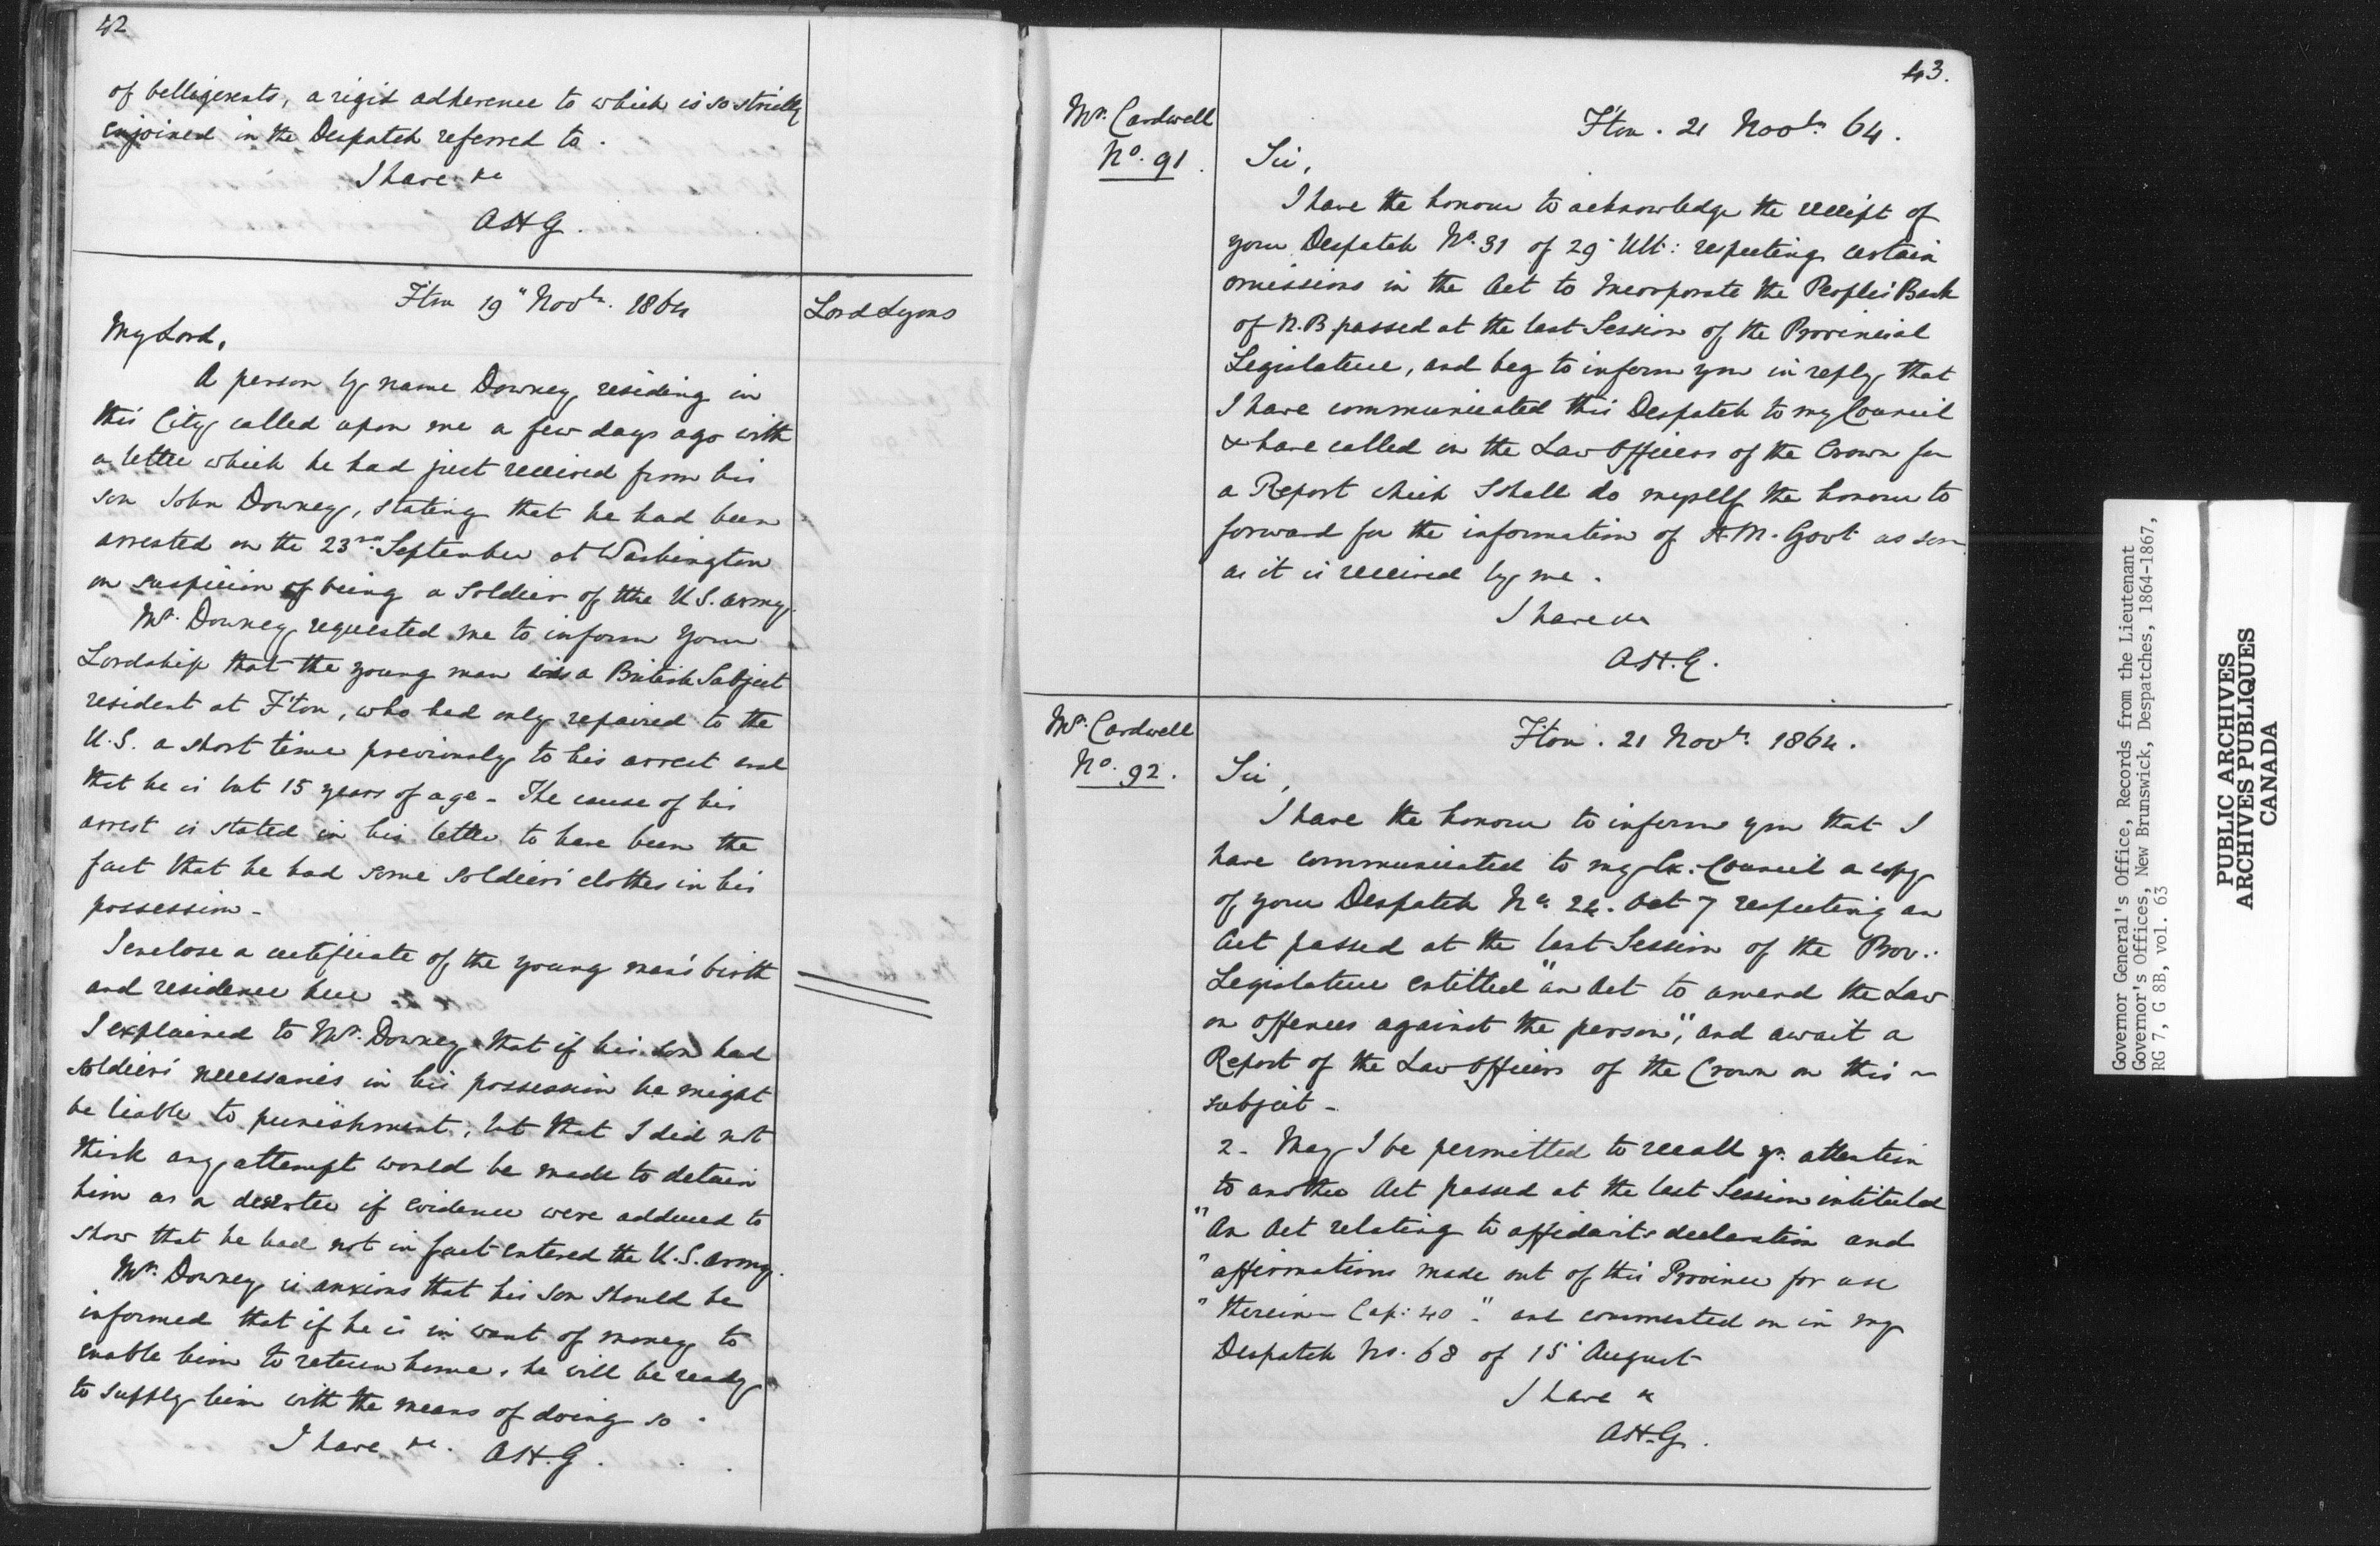 42
of belligerents, a rigid adherence to which is so strictly
enjoined in the Despatch referred to.
I have &c
A.H.G.
F'ton 19" Novbr. 1864
Lord Lyons
My Lord,
A person by name Downey, residing in
this City called upon me a few days ago with
a letter which he had just received from his
son John Downey, stating that he had been
arrested on the 23rd September at Washington
on suspicion of being a soldier of the U.S. army.
Mr. Downey requested me to inform Your
Lordship that the young man is a British Subject
resident at F'ton, who had only repaired to the
U.S. a short time previously to his arrest and
that he is but 15 years of age - The cause of his
arrest is stated in his letter to have been the
fact that he had some soldiers' clothes in his
possession -
I enclose a certificate of the young man's birth
and residence here.
I explained to Mr. Downey that if his son had
soldiers' necessaries in his possession he might
be liable to punishment, but that I did not
think any attempt would be made to detain
him as a deserter if evidence were adduced to
show that he had not in fact entered the U.S. army.
Mr. Downey is anxious that his son should be
informed that if he is in want of money to
enable him to return home, he will be ready
to supply him with the means of doing so.
I have &c. A.H.G.
43.
Mr. Cardwell
No. 91.
F'ton. 21 Novbr. 64.
Sir,
I have the honour to acknowledge the receipt of
your Despatch No. 31 of 29 Ult: respecting certain
omissions in the Act to Incorporate the People's Bank
of N.B passed at the last Session of the Provincial
Legislature, and beg to inform you in reply, that
I have communicated this Despatch to my Council
& have called on the Law Officers of the Crown for
a Report which I shall do myself the honour to
forward for the information of H.M. Govt as soon
as it is received by me.
I have &c
A.H.G.
Mr. Cardwell
No. 92.
F'ton. 21 Novbr. 1864.
Sir,
I have the honour to inform you that I
have communicated to my Ex: Council a copy
of your Despatch No. Oct 7 respecting an
Act passed at the last Session of the Prov:
Legislature entitled "an Act to amend the Law
on offences against the person", and await a
Report of the Law Officers of the Crown on this
subject -
2 - May I be permitted to recall yr. attention
to another Act passed at the last Session intituled
"An Act relating to affidavits declaration and
"affirmations made out of this Province for use
"therein - Cap: 40." and commented on in my
Despatch No. 68 of 15 August
I have &c
A.H.G.
Governor General's Office, Records from the Lieutenant
Governor's Offices, New Brunswick, Despatches, 1864-1867,
RG 7, G 8B, vol. 63
PUBLIC ARCHIVES
ARCHIVES PUBLIQUES
CANADA